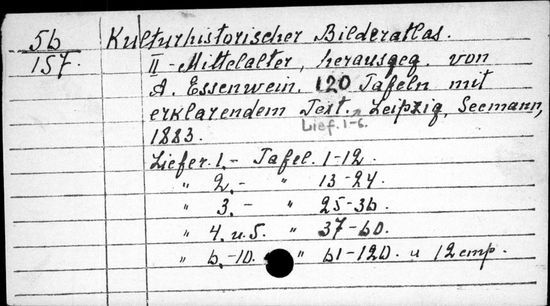 5b Kulturhistorischer Bilderatlas.
157. II - Mittelalter, herausgeg. von
A. Essenwein. 120 Tafeln mit
erklarendem Text. Leipzig, Seemann,
Lief. 1-6.
1883.
Liefer. 1.- Tafel. 1-12.
" 2.- " 13-24.
" 3.- " 25-36.
" 4. u. 5. " 37-60.
" 6.-10. " 61-120. u 12